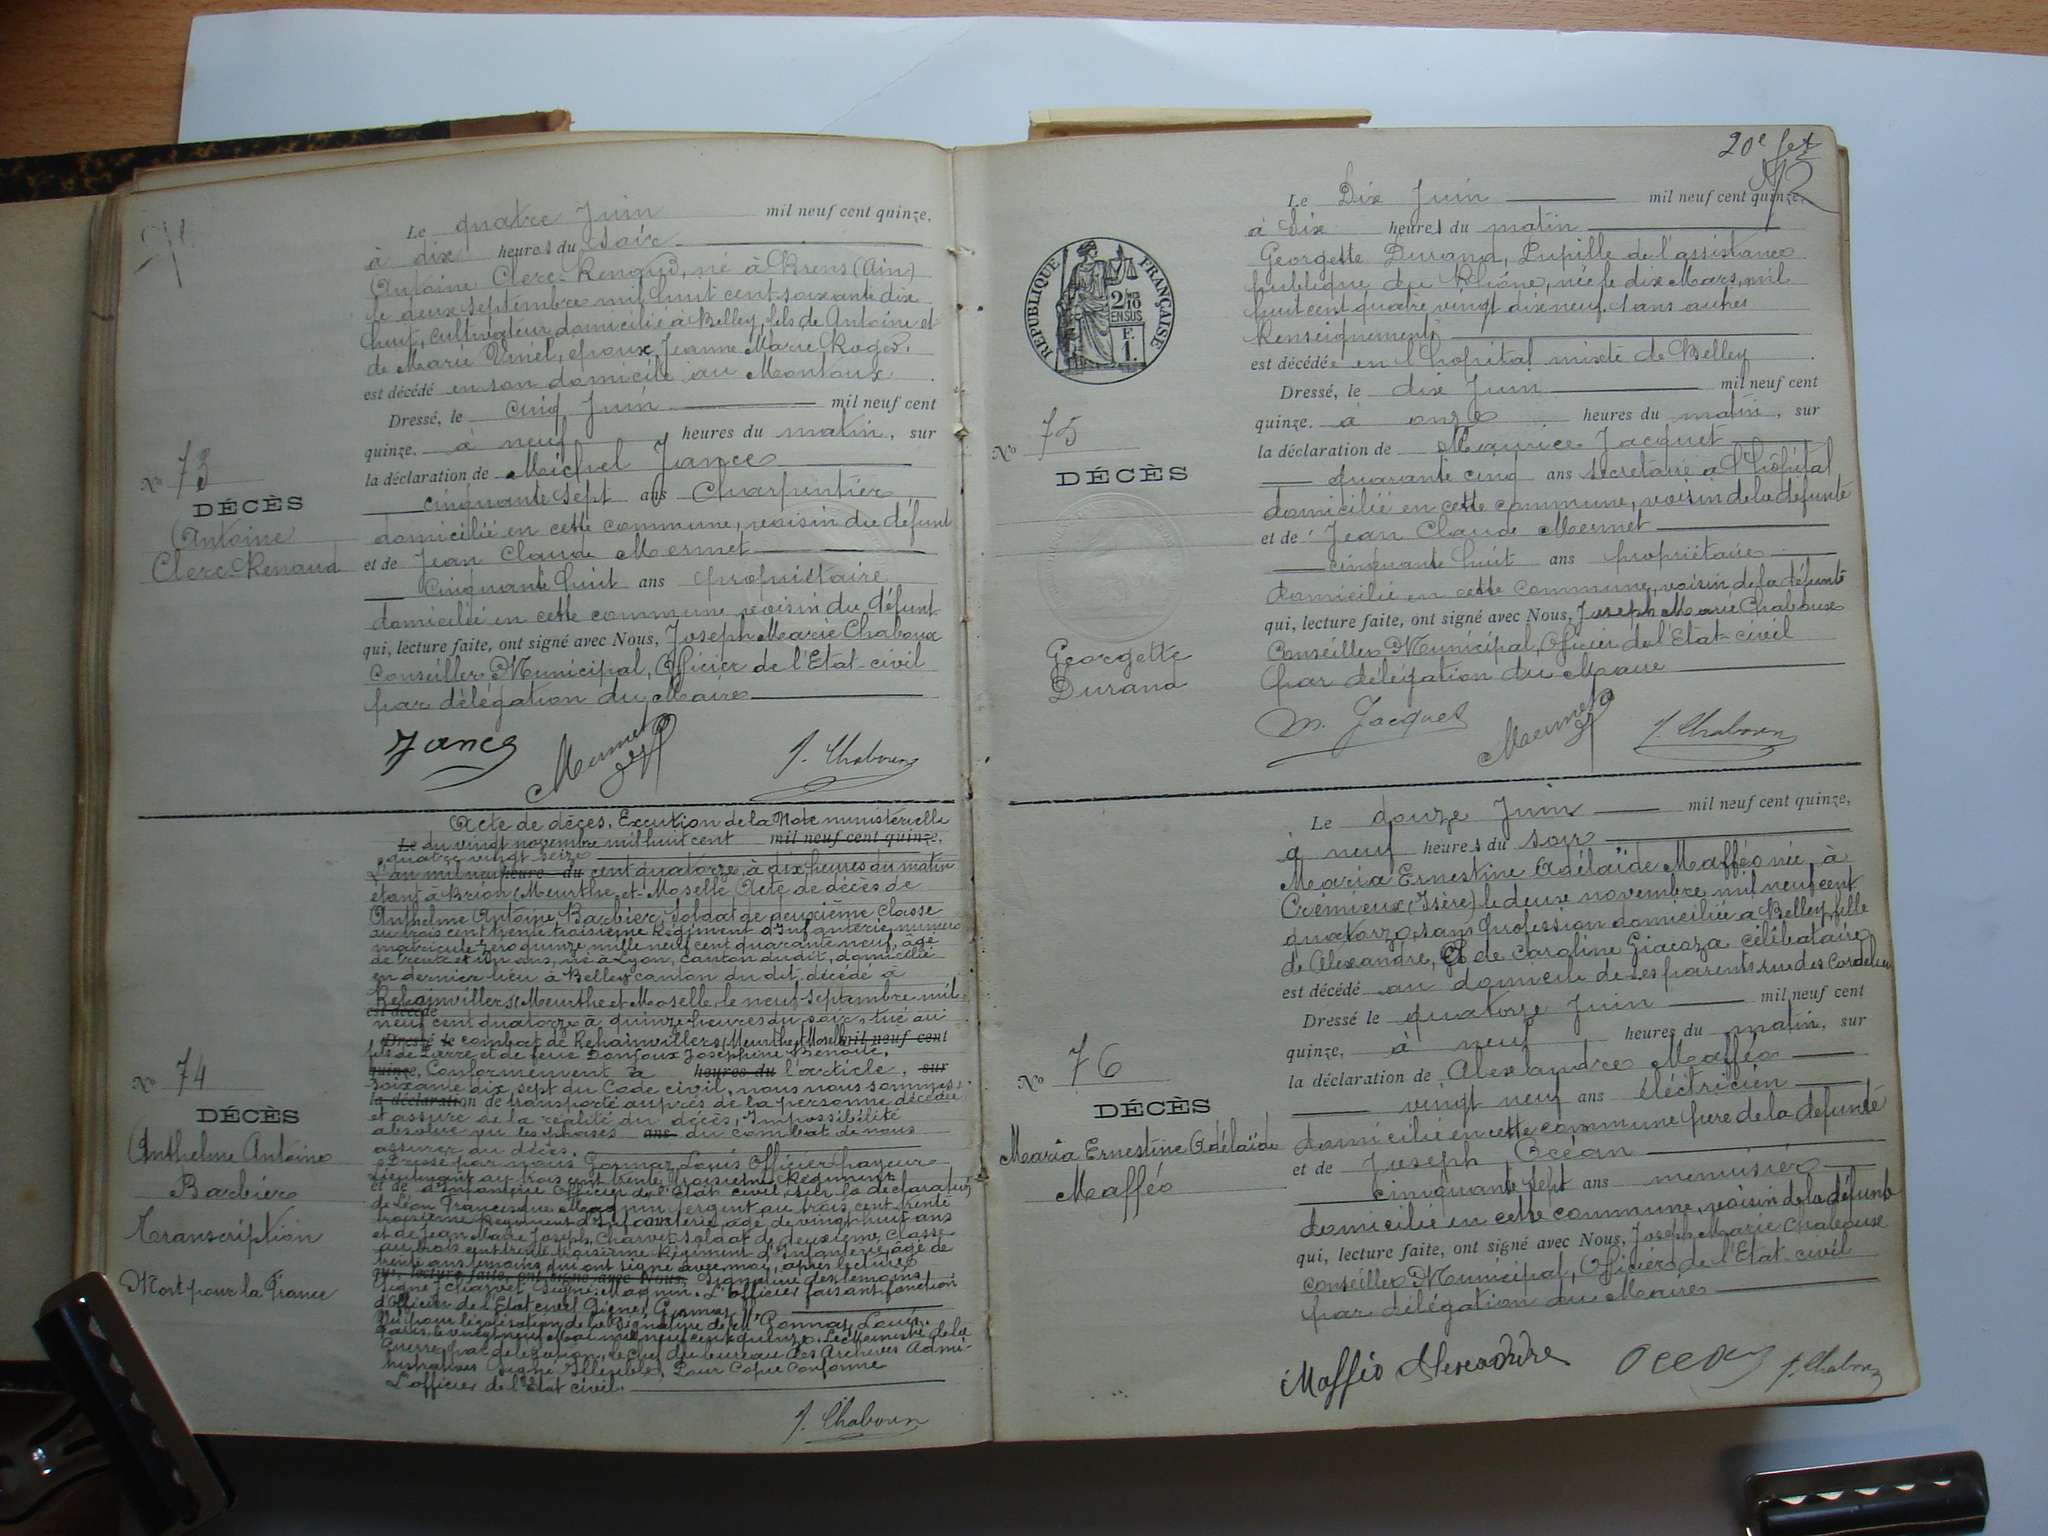 Le quatre Juin mil neuf cent quinze,
à dix heures du soir
Antoine Clerc-Renaud, né à Krens (Ain)
le deux septembre mil huit cent soixante dix
huit, cultivateur domicilié à Belley, fils de Antoine et
de Marie Vinel, époux Jeanne Marie Roger.
est décédé en son domicile au Montoux
Dressé, le cinq Juin mil neuf cent
quinze, à neuf heures du matin, sur
la déclaration de Michel Jance
cinquante sept ans Charpentier
domicilié en cette commune, voisin du défunt
et de Jean Claude Mermet
Cinquante huit ans propriétaire
domicilié en cette commune voisin du défunt
qui, lecture faite, ont signé avec Nous, Joseph Marie Chaboux
Conseiller Municipal, Officier de l'Etat-civil
par délégation du Maire
No 73
DÉCÈS
Antoine
Clerc-Renaud
Jance Mermet J. Chaboux
Acte de décès. Excution de la Note ministérielle
Le du vingt novembre mil huit cent mil neuf cent quinze,
quatre vingt seize
L'an mil neuf heure du cent quatorze, à dix heures du matin
étant à Brion (Meurthe et Moselle Acte de décès de
Anthelme Antoine Barbier, soldat de deuxième classe
au trois cent trente troisième Régiment d'Infanterie, numéro
matricule zéro quinze mille neuf cent quarante neuf, âgé
de trente et un ans, né à Lyon, canton dudit, domicilié
en dernier lieu à Belley canton du dit, décédé à
Rehainvillers (Meurthe et Moselle, le neuf septembre mil
est décédé
neuf cent quatorze à quinze heures du soir, tué au
Dressé le combat de Rehainvillers (Meurthe et Moselle mil neuf cent
fils de Pierre et de feue Donjoux Joséphine Benoite.
quinze, Conformément à heures du l'article, sur
soixante dix sept du Code civil, nous nous sommes
la déclaration de transporté auprès de la personne décédée
et assuré de la réalité du décès, Impossibilité
absolue vu les phases ans du combat de nous
assurer du décès.
Dressé par nous Gonnaz Louis Officier payeur
lieutenant au trois cent trente troisième Régiment
et de d'Infanterie Officier de l'Etat civil, sur la déclaration
de Léon Francisque Magnin sergent au trois cent trente
troisième Régiment d'Infanterie, âgé de vingt huit ans
et de Jean Marie Joseph Charvet soldat de deuxième classe
au trois cent trente troisième Régiment d'Infanterie, âgé de
trente ans témoins qui ont signé avec moi, après lecture
qui, lecture faite, ont signé avec Nous, Signature des témoins
Signé J Charvet, Signé: Magnin. L'officier faisant fonction
d'Officier de l'Etat civil Signé: Gonnaz
Vu pour légalisation de la signature de Mr Gonnaz Louis.
Paris, le vingt neuf Mai mil neuf cent quinze. Le Ministre de la
Guerre, par délégation, le chef du bureau des Archives Admi-
nistratives Signé Illisible. Pour Copie Conforme
L'officier de l'Etat civil.
No 74
DÉCÈS
Anthelme Antoine
Barbier
Transcription
Mort pour la France
J. Chaboux
20e fet
Le Dix Juin mil neuf cent quinze,
à Dix heures du matin
Georgette Durand, Pupille de l'assistance
publique du Rhône, née le dix Mars, mil
huit cent quatre vingt dix neuf. sans autres
Renseignements
est décédée en l'hôpital mixte de Belley
Dressé, le dix Juin mil neuf cent
quinze, à onze heures du matin, sur
la déclaration de Maurice Jacquet
quarante cinq ans secrétaire à l'hôpital
domicilié en cette commune, voisin de la défunte
et de Jean Claude Mermet
cinquante huit ans propriétaire
domicilié en cette commune, voisin de la défunte
qui, lecture faite, ont signé avec Nous, Joseph Marie Chaboux
Conseiller Municipal, Officier de l'Etat-civil
par délégation du Maire
RÉPUBLIQUE FRANÇAISE
2 10
EN SUS
F.
1.
No 75
DÉCÈS
Georgette
Durand
M. Jacquet Mermet J. Chaboux
Le douze Juin mil neuf cent quinze,
à neuf heures du soir
Maria Ernestine Adélaïde Mafféo née à
Crémieux (Isère) le deux novembre mil neuf cent
quatorze, sans profession domiciliée à Belley, fille
de Alexandre, et de Caroline Giacoza célibataire
est décédé au domicile de ses parents rue des Cordeliers
Dressé le quatorze Juin mil neuf cent
quinze, à neuf heures du matin, sur
la déclaration de Alexandre Mafféo
vingt neuf ans électricien
domicilié en cette commune père de la défunte
et de Joseph Océan
cinquante sept ans menuisier
domicilié en cette commune, voisin de la défunte
qui, lecture faite, ont signé avec Nous, Joseph Marie Chaboux
Conseiller Municipal, Officier de l'Etat-civil
par délégation du Maire
No 76
DÉCÈS
Maria Ernestine Adélaïde
Mafféo
Maffeo Alexandre Ocean J. Chaboux